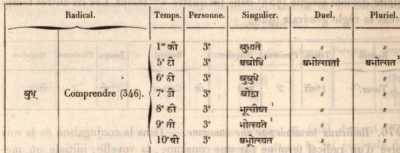 Radical. Temps. Personne. Singulier. Duel. Pluriel.
1re की 3e बुध्यते " "
5e टी 3e अबोधि¹ अभोत्सातां अभोत्सत¹
6e ठी 3e बुबुधे " "
बुध् Comprendre (346). 7e डी 3e बोद्धा " "
8e ढी 3e भुत्सीष्ट¹ " "
9e ती 3e भोत्स्यते¹ " "
10e थी 3e अभोत्स्यत " "